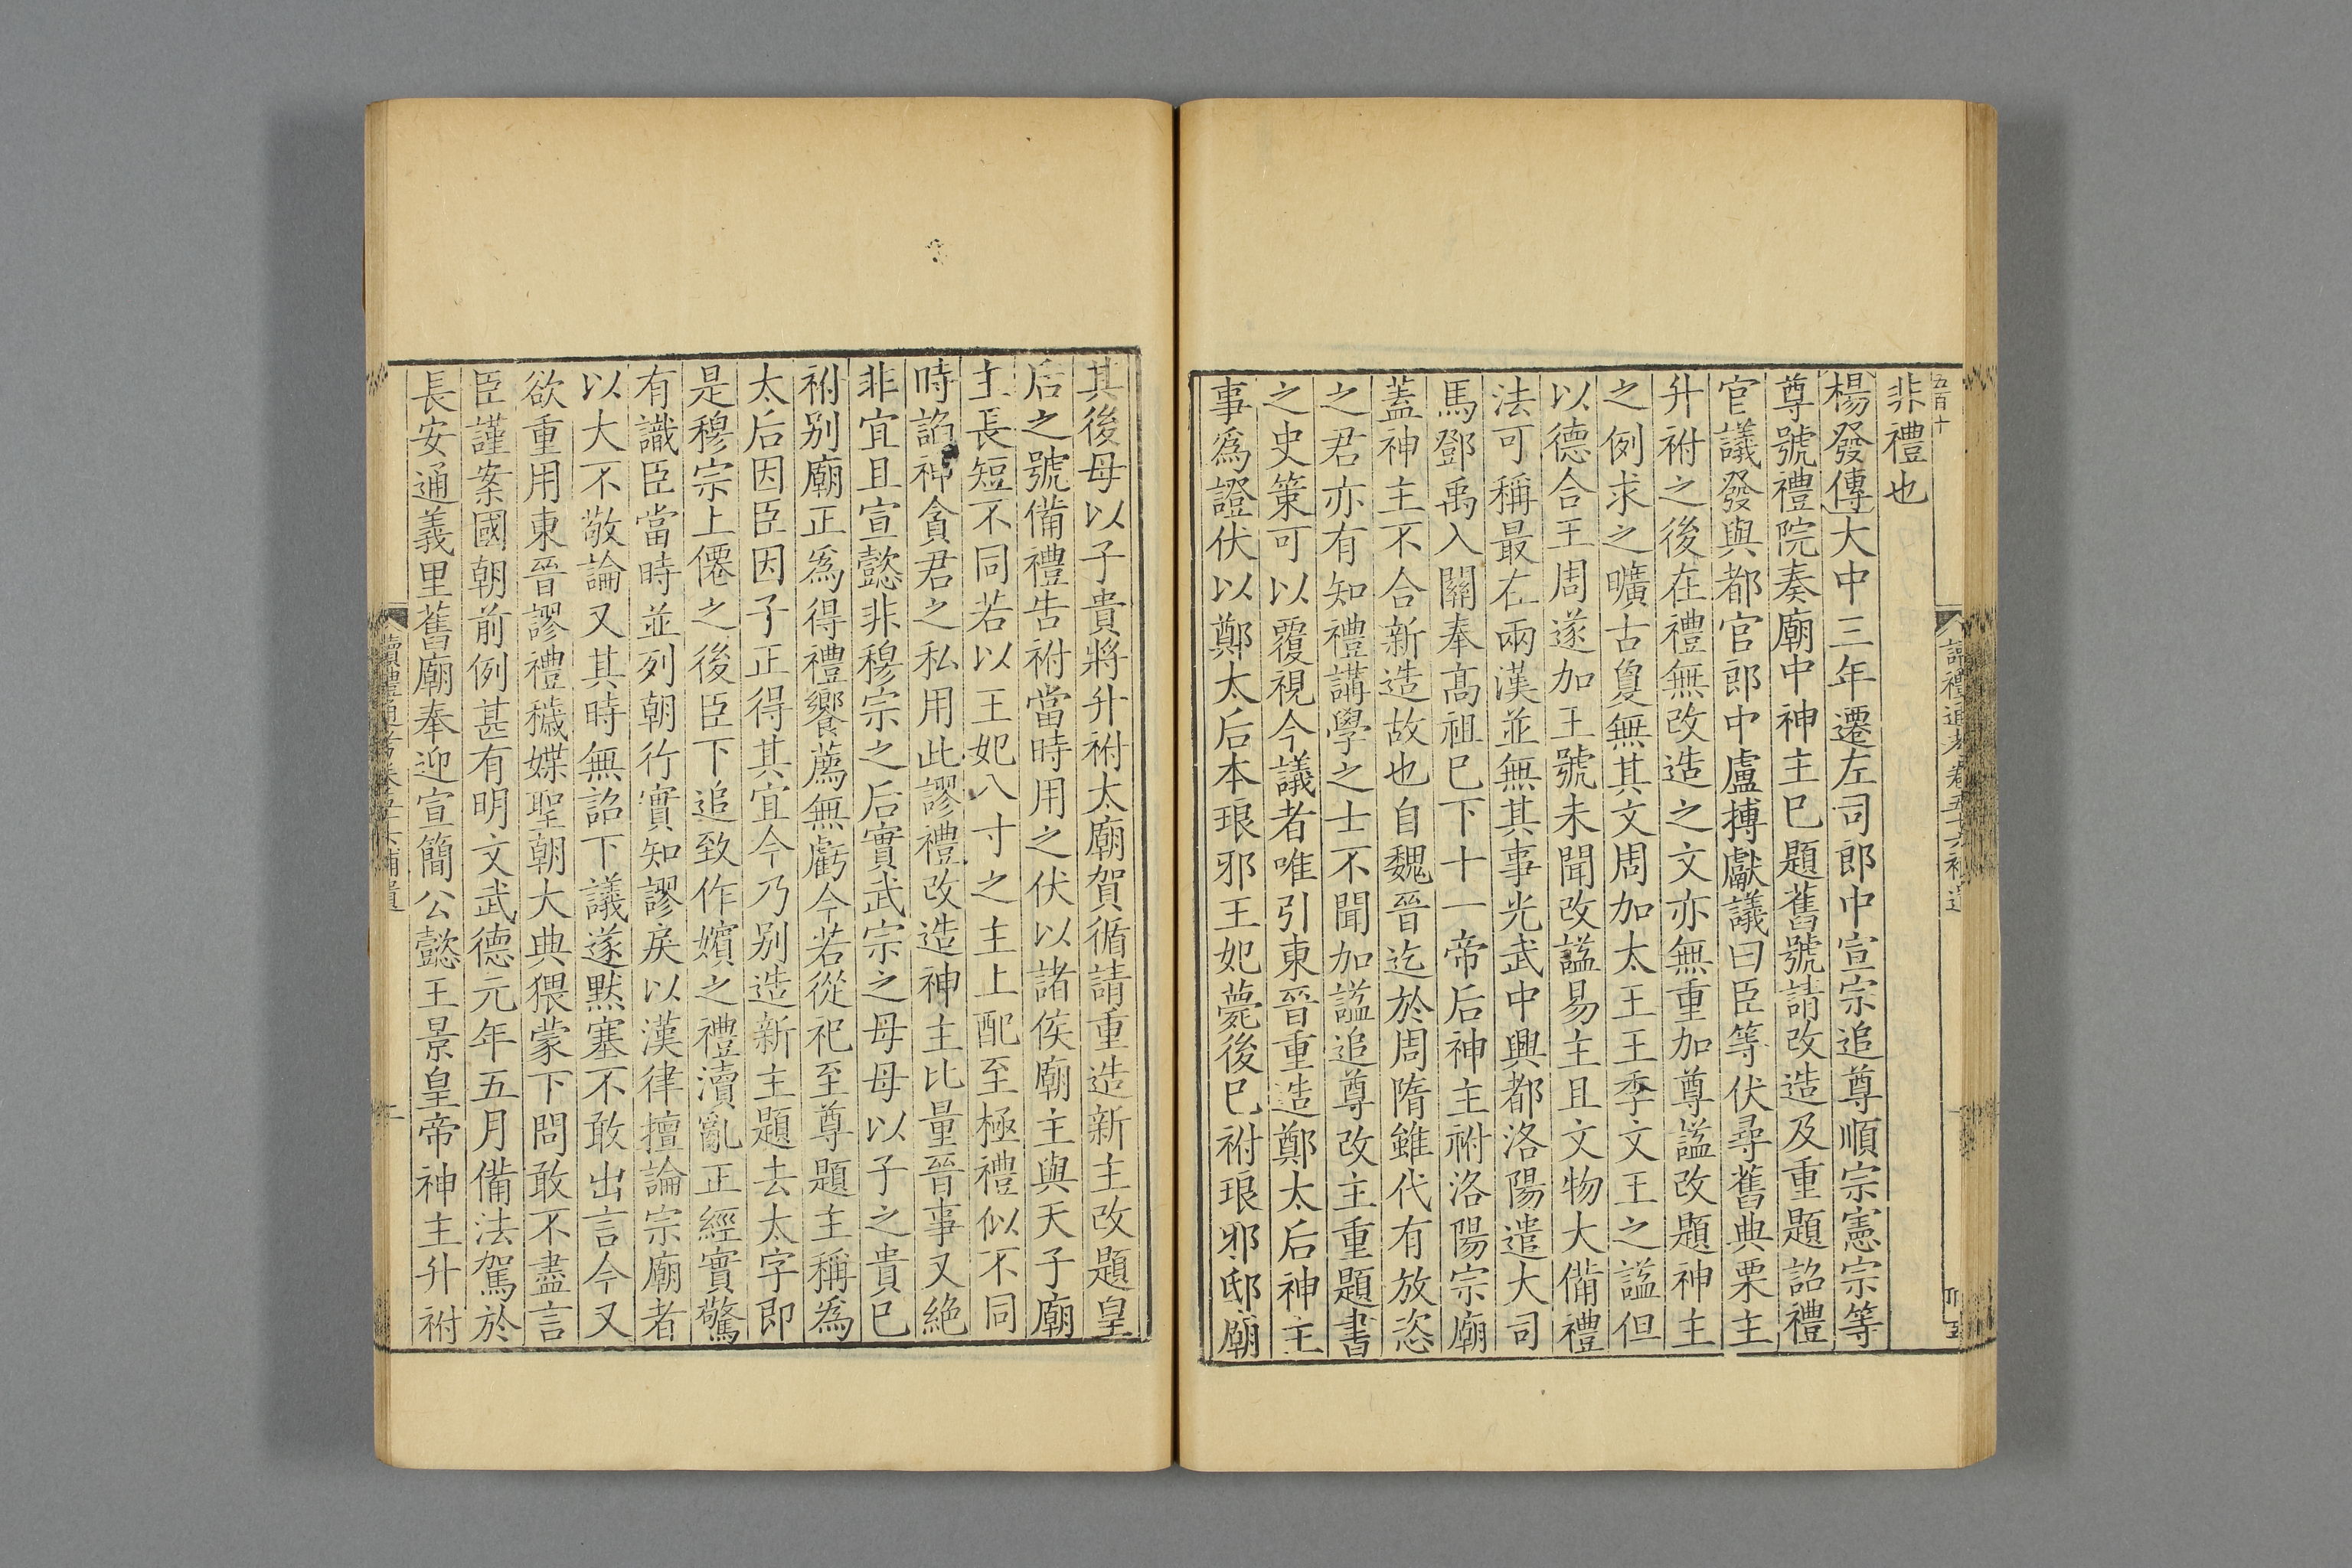 五百十
非禮也
楊發傳大中三年遷左司郎中宣宗追尊順宗憲宗等
尊號禮院奏廟中神主已題舊號請改造及重題詔禮
官議發與都官郎中盧搏獻議曰臣等伏尋舊典栗主
升祔之後在禮無改造之文亦無重加尊謚改題神主
之例求之曠古夐無其文周加太王王季文王之謚但
以德合王周遂加王號未聞改謚易主且文物大備禮
法可稱最在兩漢並無其事光武中興都洛陽遣大司
馬鄧禹入關奉高祖已下十一帝后神主祔洛陽宗廟
蓋神主不合新造故也自魏晉迄於周隋雖代有放恣
之君亦有知禮講學之士不聞加謚追尊改主重題書
之史策可以覆視今議者唯引東晉重造鄭太后神主
事爲證伏以鄭太后本琅邪王妃薨後已祔琅邪邸廟
其後母以子貴將升祔太廟賀循請重造新主改題皇
后之號備禮告祔當時用之伏以諸侯廟主與天子廟
主長短不同若以王妃八寸之主上配至極禮似不同
時諂神貪君之私用此謬禮改造神主比量晉事又絶
非宜且宣懿非穆宗之后實武宗之母母以子之貴已
祔别廟正爲得禮饗薦無虧今若從祀至尊題主稱爲
太后因臣因子正得其宜今乃别造新主題去太字即
是穆宗上僊之後臣下追致作嬪之禮瀆亂正經實驚
有識臣當時並列朝行實知謬戾以漢律擅論宗廟者
以大不敬論又其時無詔下議遂黙塞不敢出言今又
欲重用東晉謬禮穢媟聖朝大典猥蒙下問敢不盡言
臣謹案國朝前例甚有明文武德元年五月備法駕於
長安通義里舊廟奉迎宣簡公懿王景皇帝神主升祔
讀禮通考卷五十六補遺